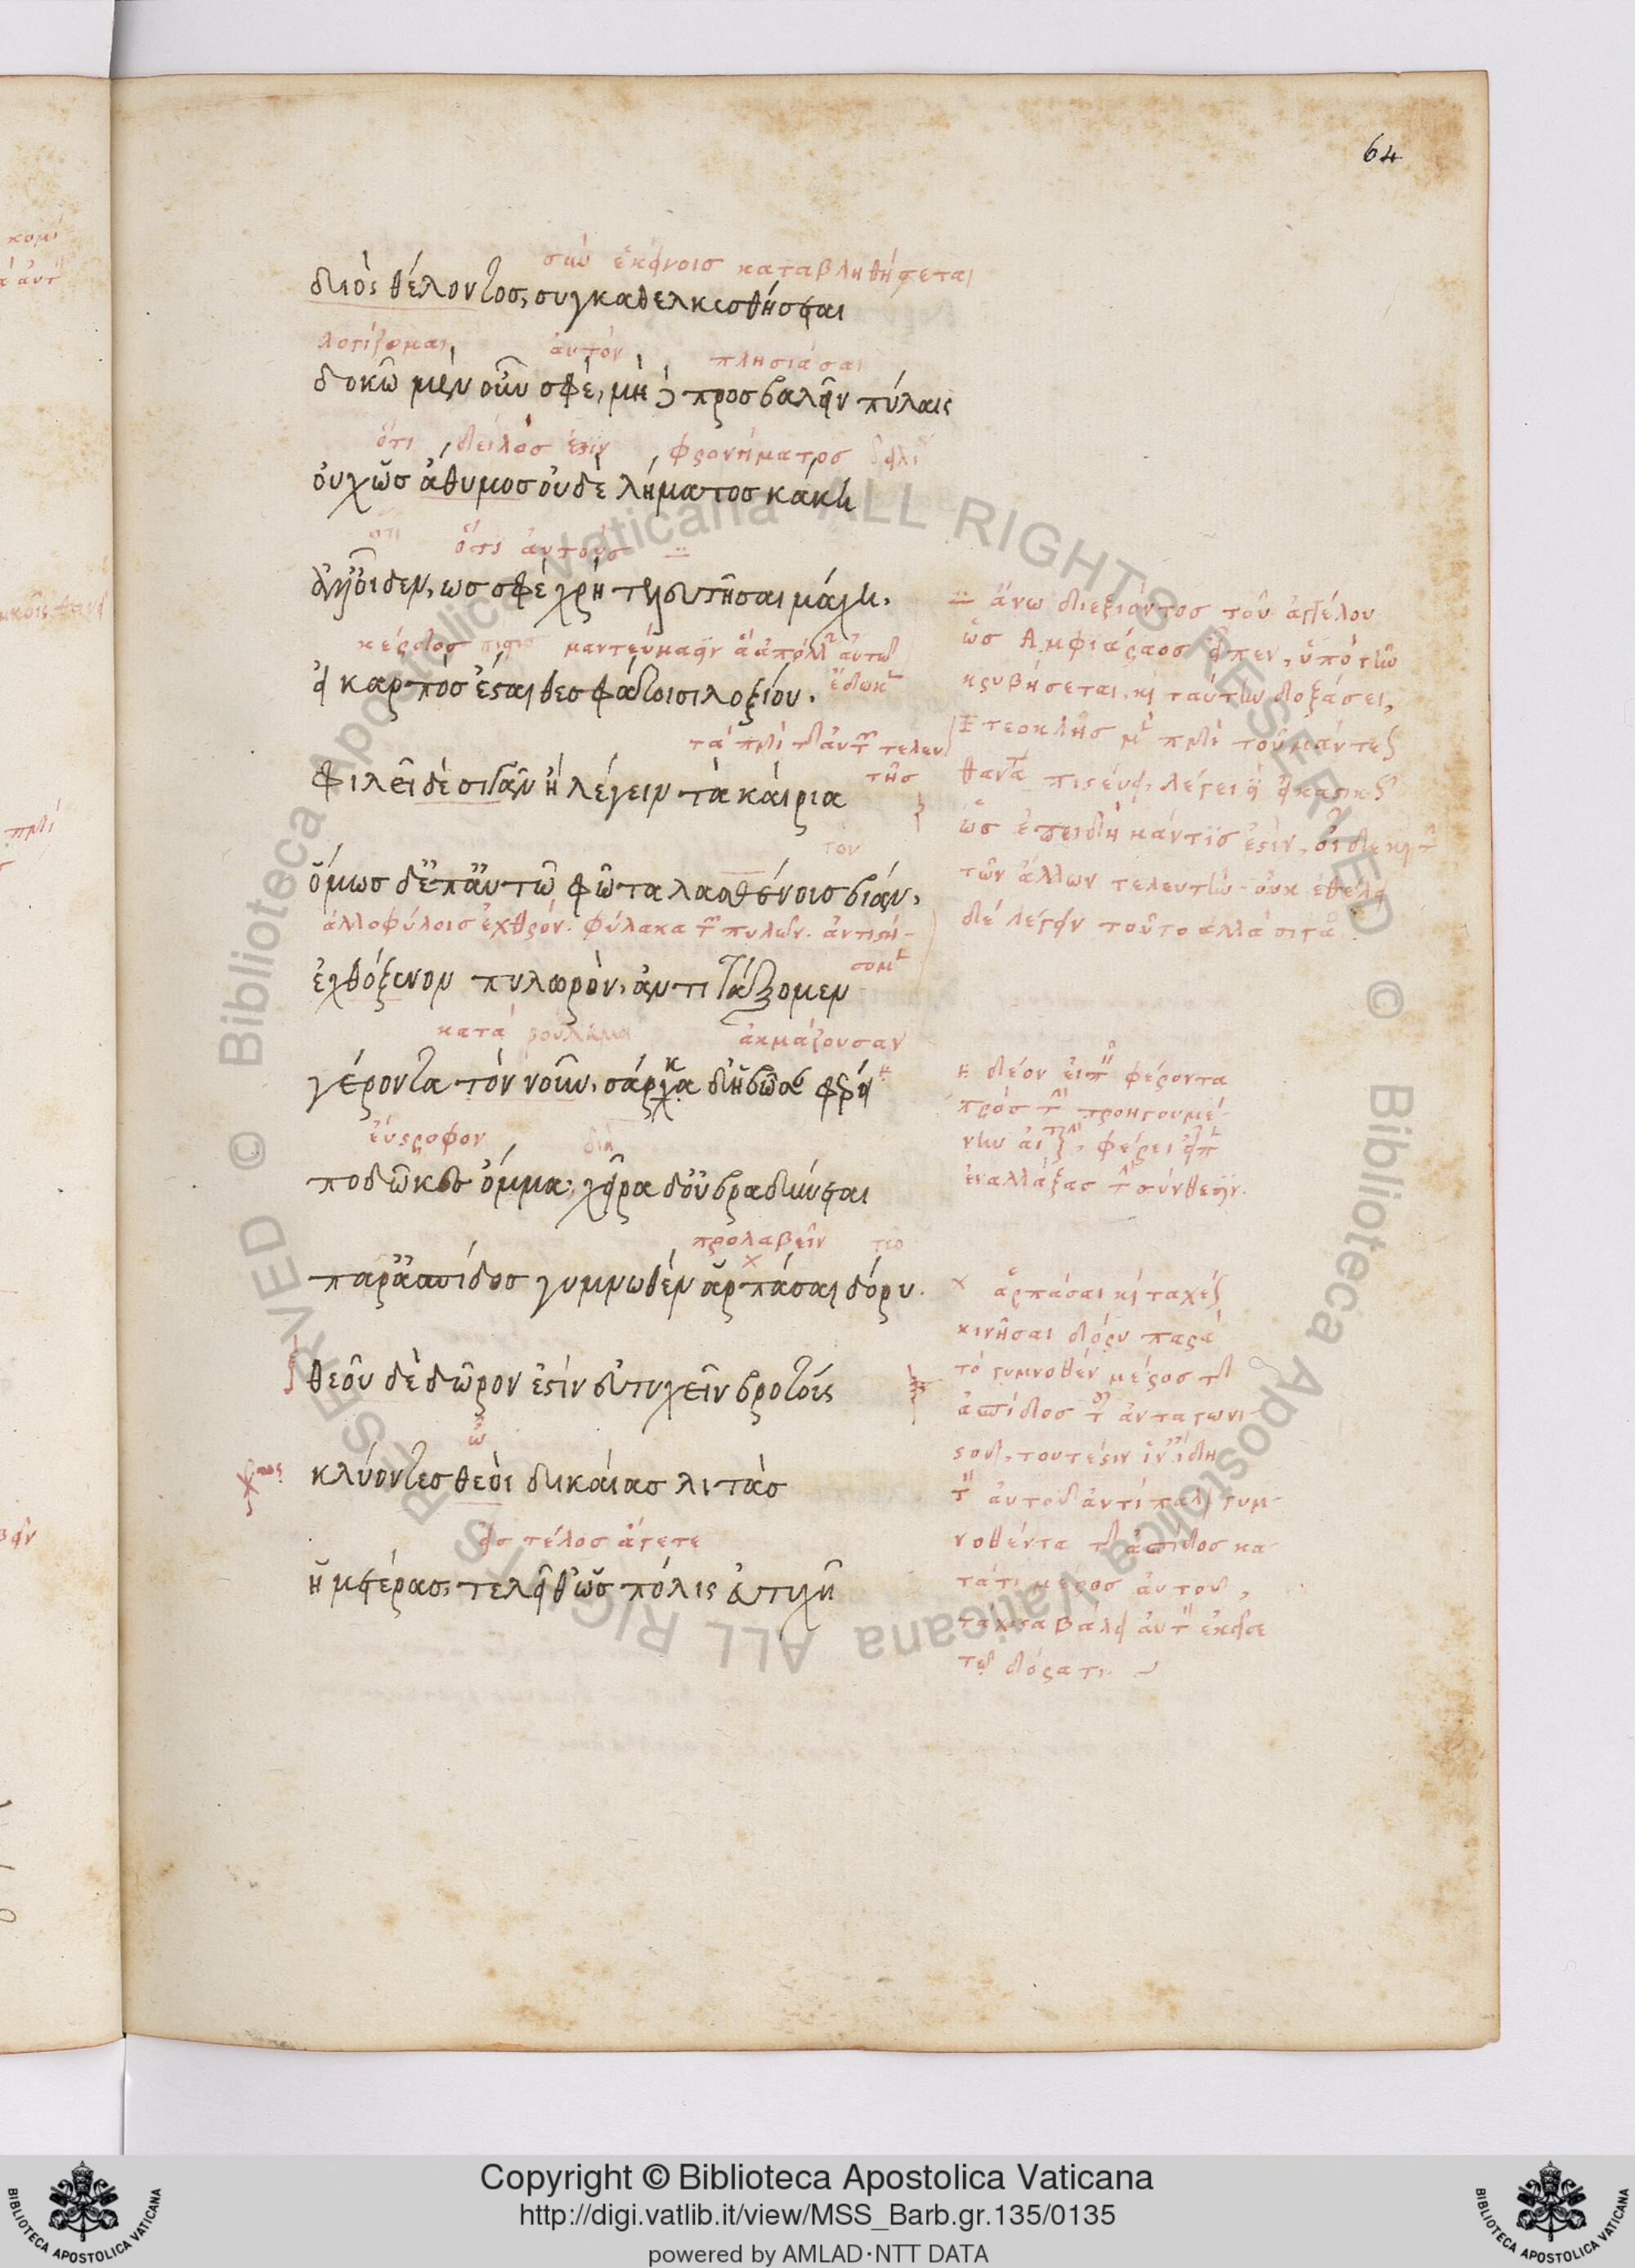 64
σὺν ἐκείνοις καταβληθήσεται
διὸς θέλοντος, συγκαθελκυσθήσεται
λογίζομαι αὐτὸν πλησιάσαι
δοκῶ μὲν οὖν σφὲ, μὴ προσβαλεῖν πύλαις
ὅτι δειλός ἐστιν φρονήματος
οὐχ ὡς ἄθυμος οὐδὲ λήματος κάκῃ
ὅτι ὅτι αὐτοὺς
ἀλλ' οἶδεν, ὡς σφὲ χρὴ τελευτῆσαι μάχῃ.
κέρδος μαντεύμασιν ἃ ἀπόλλων αὐτῷ
ἔδωκεν
εἰ καρπὸς ἔσται θεσφάτοισι λοξίου.
τὰ περὶ τελευ
τῆς
φιλεῖ δὲ σιγᾶν ἢ λέγειν τὰ καίρια
τὸν
ὅμως δ' ἐπ' αὐτῷ φῶτα λασθένους βίαν,
ἀλλοφύλοις ἐχθρόν. φύλακα τῶν πυλῶν. ἀντιστή-
σομεν
ἐχθρόξενον πυλωρὸν, ἀντιτάξομεν
κατὰ ἀκμάζουσαν
γέροντα τὸν νοῦν, σάρκα δ' ἡβῶσαν φέρει
εὔστροφον
ποδῶκες ὄμμα, χεῖρα δ' οὐ βραδύνεται
προλαβεῖν τὸ
παρ' ἀσπίδος γυμνωθὲν ἁρπάσαι δόρυ.
θεοῦ δὲ δῶρον ἐστὶν εὐτυχεῖν βροτούς
ὦ
κλύοντες θεοὶ δικαίας λιτὰς
εἰς τέλος ἄγετε
ἡμετέρας, τελεῖθ' ὡς πόλις εὐτυχῇ
ἄνω διεξιόντος τοῦ ἀγγέλου
ὡς Ἀμφιάραος εἶπεν, ὑπὸ γῆν
κρυβήσεται, καὶ ταύτην δοξάσει,
Ἐτεοκλῆς περὶ τοῦ μάντεως
θανα πιστεύει, λέγει
ὡς ἐπειδὴ μάντις ἐστὶν, οἶδε καὶ τὴν
τῶν ἄλλων τελευτήν. οὐκ ἐθέλει
δὲ λέγειν τοῦτο ἀλλὰ σιγᾷ
δέον εἰπεῖν φέροντα
πρὸς τὴν προηγουμέ-
νην αἰτιατικὴν, φέρει εἶπεν
ἐναλλάξας τὴν σύνθεσιν.
ἁρπάσαι καὶ ταχέως
κινῆσαι δόρυ παρὰ
τὸ γυμνωθὲν μέρος τῆς
ἀσπίδος τοῦ ἀνταγωνι-
στοῦ, τουτέστιν ἵν' ἴδῃ
τὸν αὐτοῦ ἀντίπαλον γυμ-
νωθέντα τῆς ἀσπίδος κα-
τά τι μέρος αὐτοῦ,
τάχιστα βάλει αὐτὸν ἐκεῖσε
τῷ δόρατι.
© Biblioteca Apostolica Vaticana ALL RIGHTS RESERVED © Biblioteca Apostolica Vaticana ALL RIGHTS RESERVED
Copyright © Biblioteca Apostolica Vaticana
http://digi.vatlib.it/view/MSS_Barb.gr.135/0135
powered by AMLAD·NTT DATA
BIBLIOTECA APOSTOLICA VATICANA
BIBLIOTECA APOSTOLICA VATICANA